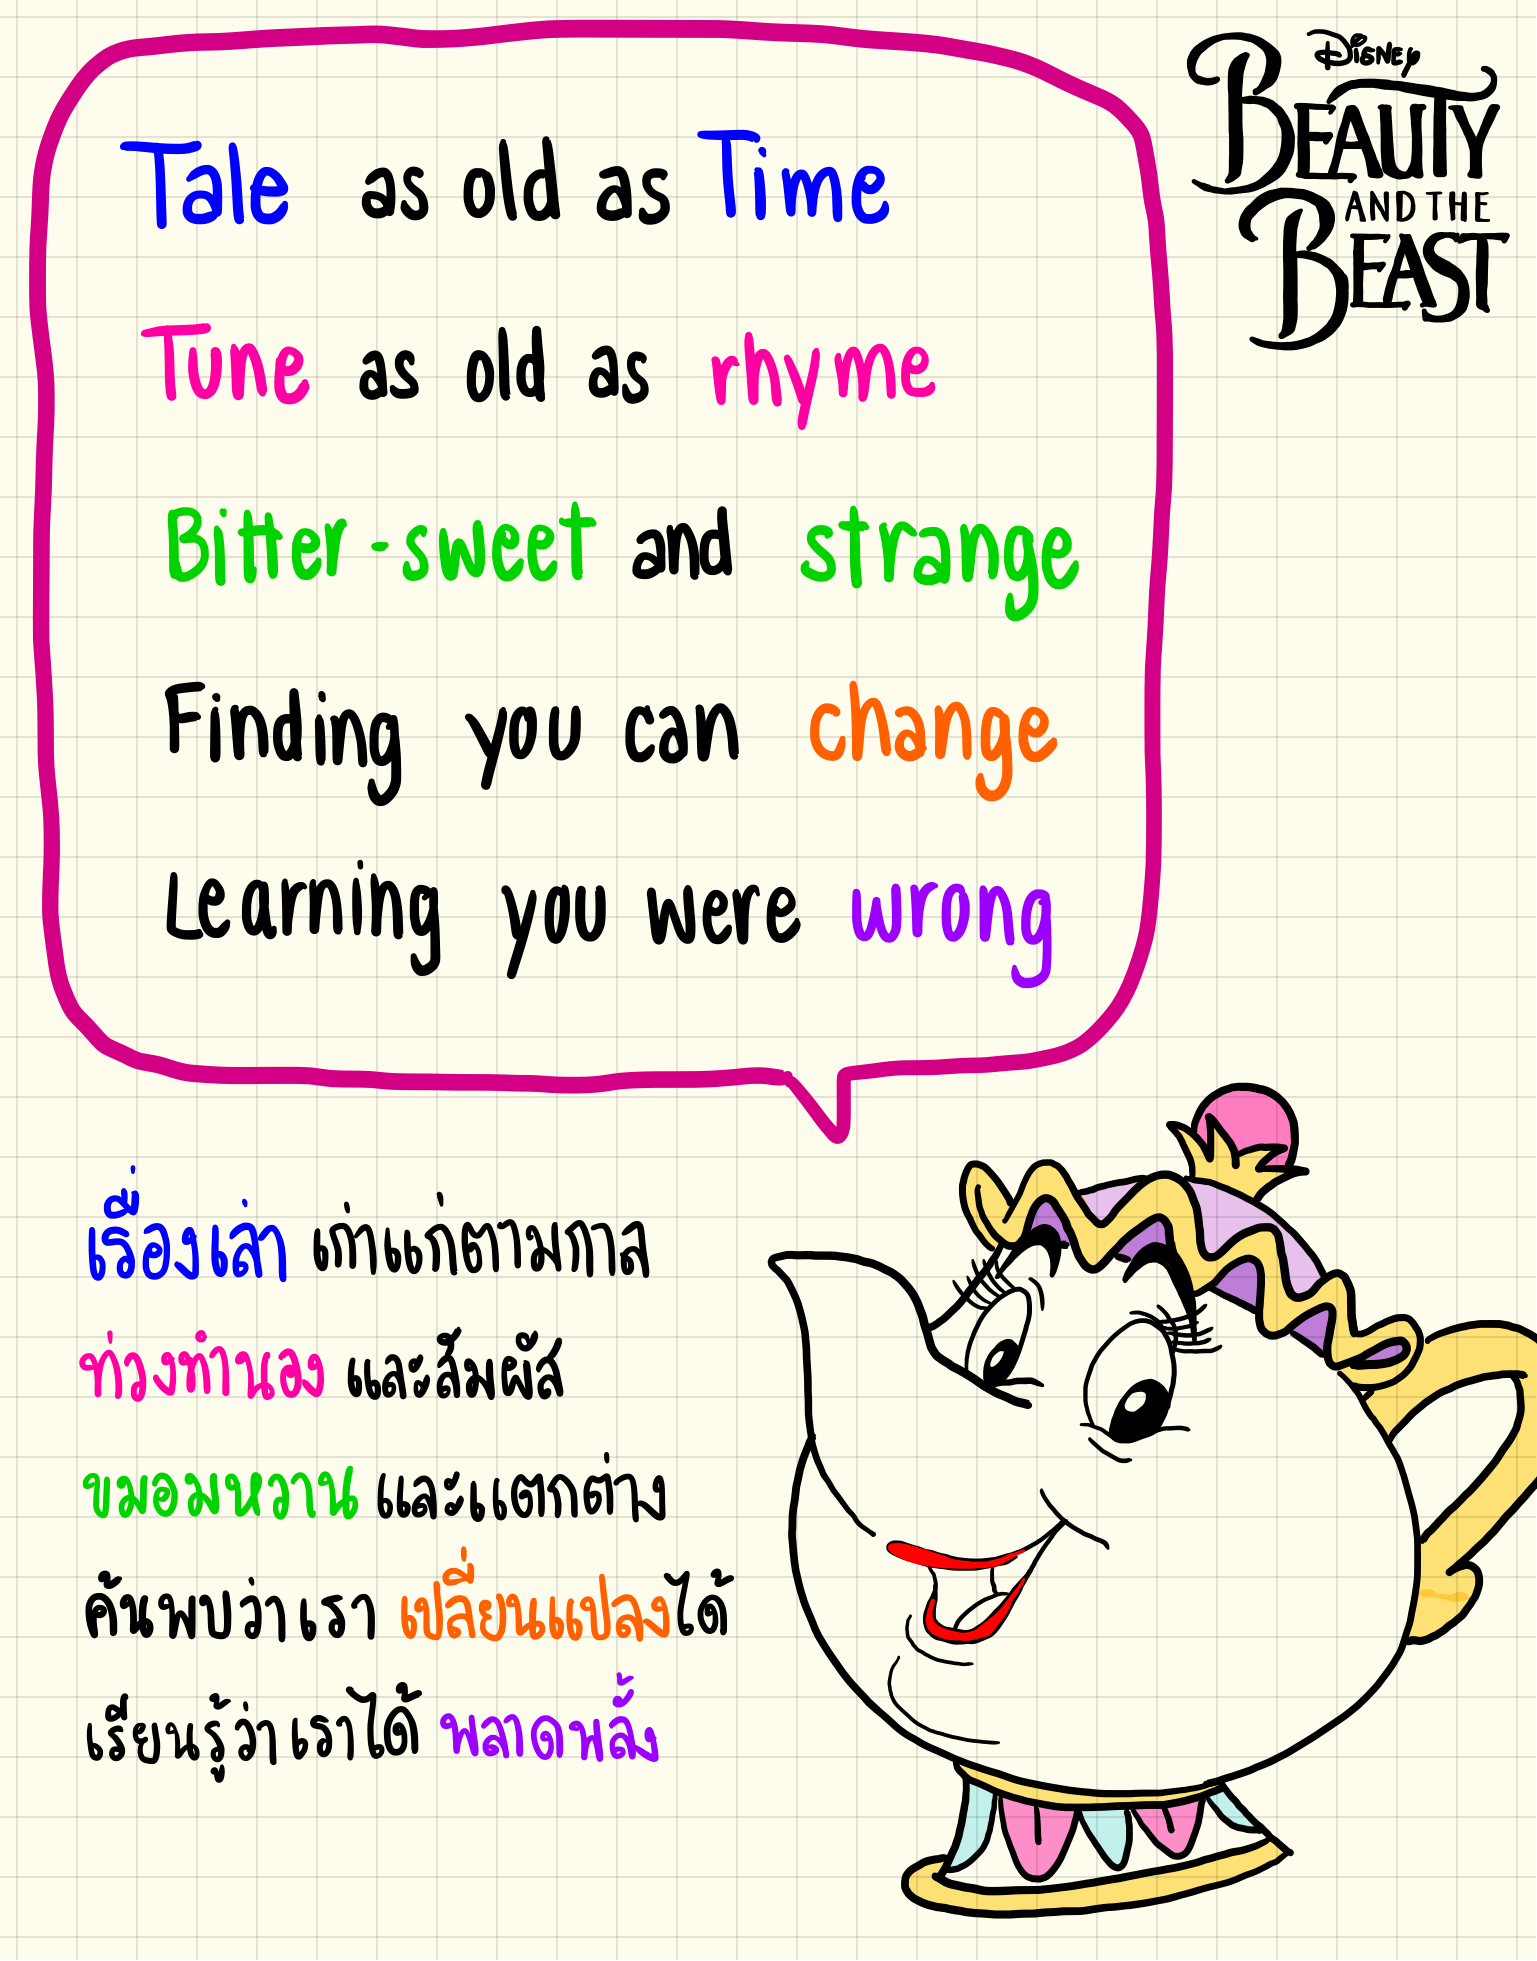 Tale as old as Time
Tune as old as rhyme
Bitter-sweet and strange
Finding you can change
Learning you were wrong
DISNEY
BEAUTY
AND THE
BEAST
เรื่องเล่า เก่าแก่ตามกาล
ท่วงทำนอง และสัมผัส
ขมอมหวาน และแตกต่าง
ค้นพบว่าเรา เปลี่ยนแปลงได้
เรียนรู้ว่าเราได้ พลาดพลั้ง